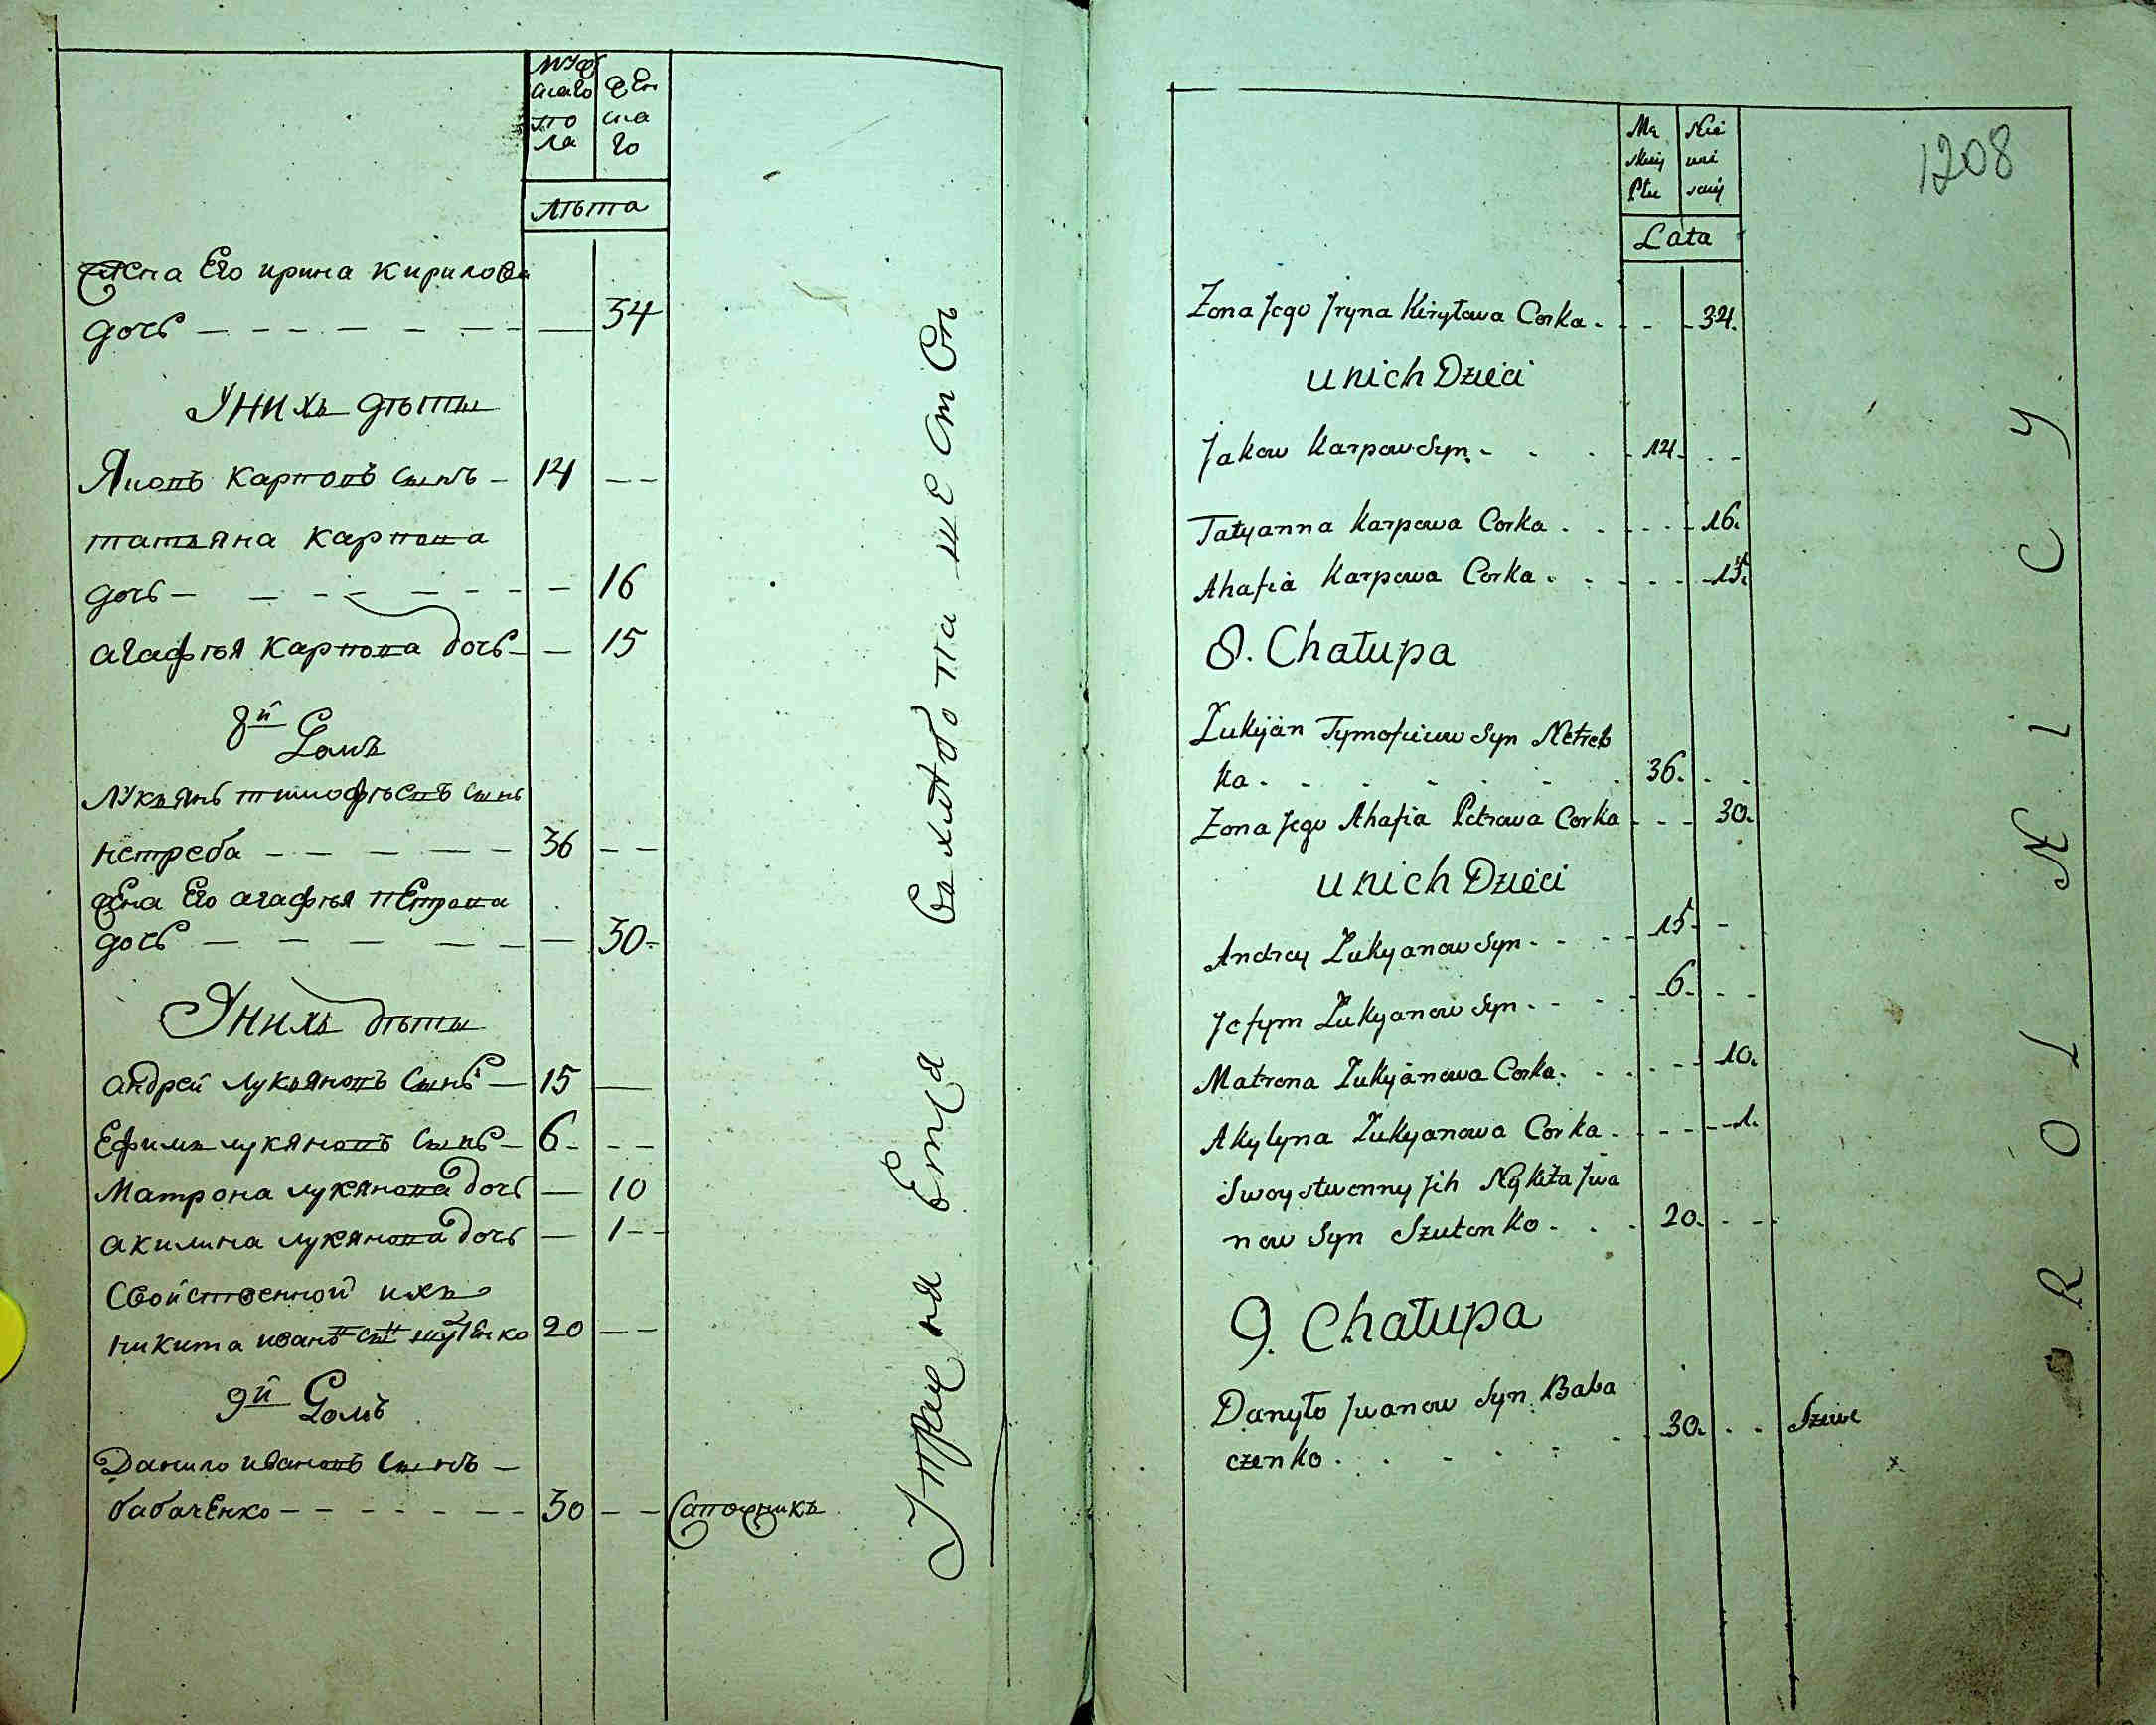 мужескаго пола
женскаго
лѣта
жена Его ирина кирилова
дочь — — — — — — 34
Унихъ дѣти
Яковъ карповъ сынъ — 14 — —
татьяна карпова
дочь — — — — — — 16
агафья карпова дочь — — 15
8й Домъ
лукьянъ тимофѣевъ сынъ
нетреба — — — — — 36 — —
жена Его агафья пЕтрова
дочь — — — — — — 30
Унихъ дѣти
андрей лукьяновъ сынъ — 15 —
Ефимъ лукяновъ сынъ — 6 — —
Матрона лукянова дочь — 10
акилина лукянова дочь — 1 — —
Свойственной ихъ
никита иванъ сынъ шутЕнко 20 — —
9й Домъ
Данило ивановъ сынъ —
бабачЕнко — — — — — — 30 — — Сапожникъ
1208
Mę skiey Płci
Nie wie sciey
Lata
Zona Jego Jryna Kiryłowa Corka . - - - 34.
u nich Dzieci
Jakow Karpow Syn. - . . - 14. - -
Tatyanna Karpowa Corka . . - - . - 16.
Ahafia Karpowa Corka . . - - . - 15.
8. Chałupa
Łukjan Tymofiiow Syn Netreb
ka . - - - - - . 36. . -
Zona Jego Ahafia Petrowa Corka - - - 30.
u nich Dzieci
Andrey Łukyanow Syn - - - - 15. -
Jefym Łukyanow Syn . - - . - 6. - -
Matrona Łukyanowa Corka . . . - - 10.
Akylyna Łukyanowa Corka . - - - - 1.
Swoystwenny Jih Nykita Jwa
now Syn Szutenko . . . 20. - - -
9. Chałupa
Danyło Jwanow Syn Baba
czenko . . - - - - 30. . . Szewc
R O L N I C Y